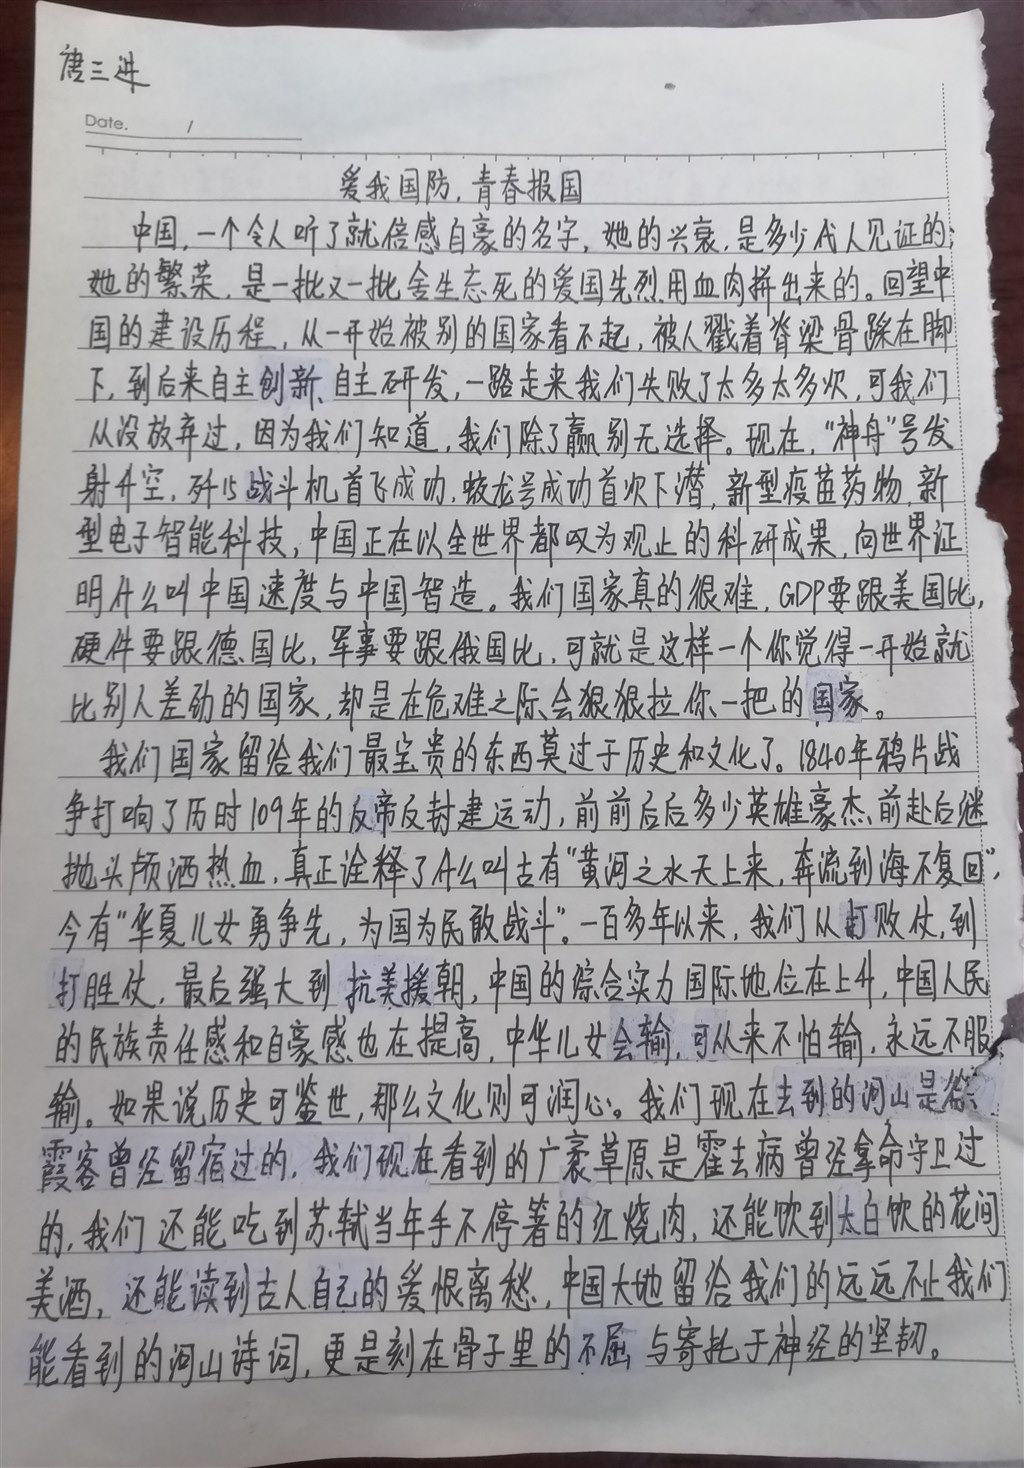 唐三进
Date. /
爱我国防,青春报国
中国,一个令人听了就倍感自豪的名字,她的兴衰,是多少代人见证的;
她的繁荣,是一批又一批舍生忘死的爱国先烈用血肉拼出来的。回望中
国的建设历程,从一开始被别的国家看不起,被人戳着脊梁骨踩在脚
下,到后来自主创新、自主研发,一路走来我们失败了太多太多次,可我们
从没放弃过,因为我们知道,我们除了赢别无选择。现在,“神舟”号发
射升空,歼15战斗机首飞成功,蛟龙号成功首次下潜,新型疫苗药物,新
型电子智能科技,中国正在以全世界都叹为观止的科研成果,向世界证
明什么叫中国速度与中国智造。我们国家真的很难,GDP要跟美国比,
硬件要跟德国比,军事要跟俄国比,可就是这样一个你觉得一开始就
比别人差劲的国家,却是在危难之际会狠狠拉你一把的国家。
我们国家留给我们最宝贵的东西莫过于历史和文化了。1840年鸦片战
争打响了历时109年的反帝反封建运动,前前后后多少英雄豪杰前赴后继
抛头颅洒热血,真正诠释了什么叫古有“黄河之水天上来,奔流到海不复回”,
今有“华夏儿女勇争先,为国为民敢战斗”。一百多年以来,我们从打败仗,到
打胜仗,最后强大到抗美援朝,中国的综合实力国际地位在上升,中国人民
的民族责任感和自豪感也在提高,中华儿女会输,可从来不怕输,永远不服
输。如果说历史可鉴世,那么文化则可润心。我们现在去到的河山是徐
霞客曾经留宿过的,我们现在看到的广袤草原是霍去病曾经拿命守卫过
的,我们还能吃到苏轼当年手不停箸的红烧肉,还能饮到太白饮的花间
美酒,还能读到古人自己的爱恨离愁,中国大地留给我们的远远不止我们
能看到的河山诗词,更是刻在骨子里的不屈与寄托于神经的坚韧。